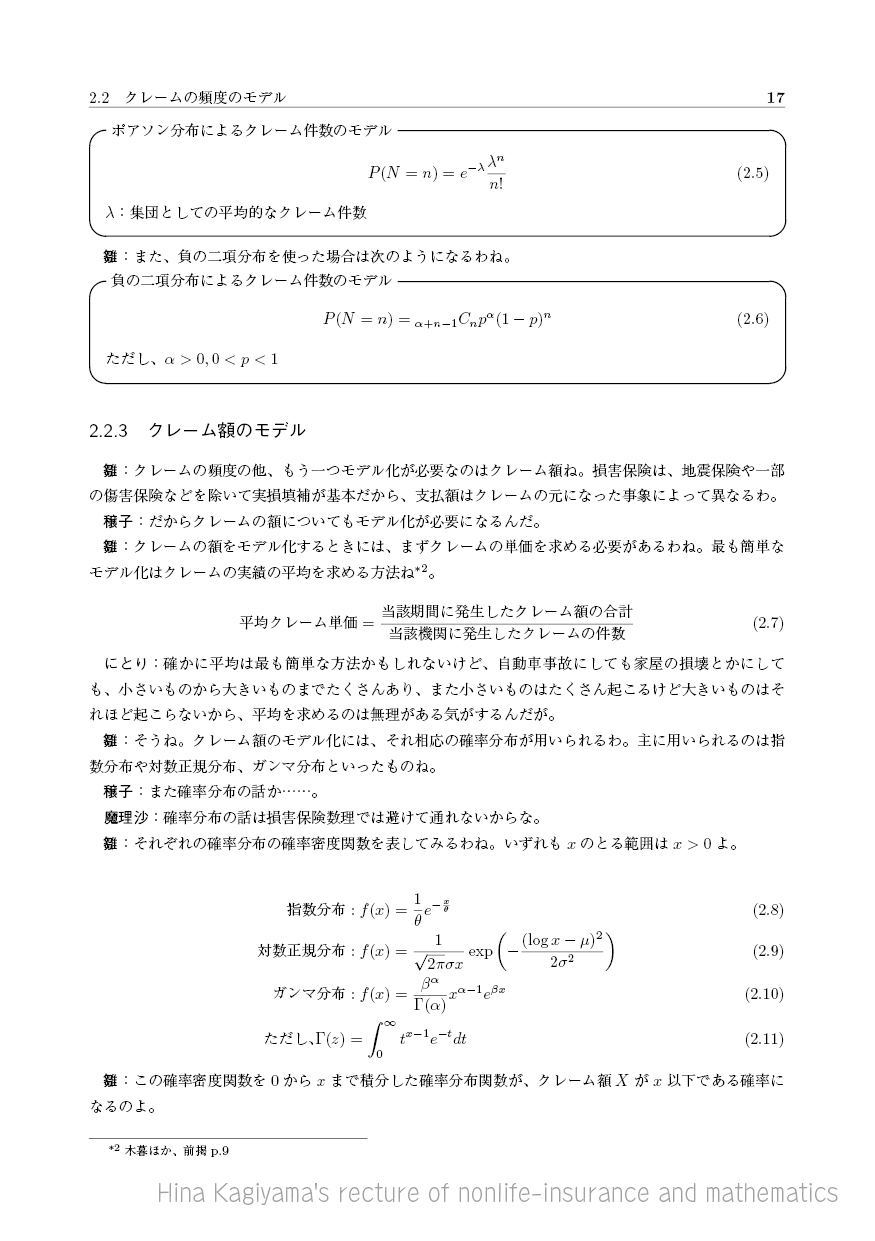 2.2 クレームの頻度のモデル 17
ポアソン分布によるクレーム件数のモデル
P(N = n) = e^{-λ} λ^n / n! (2.5)
λ：集団としての平均的なクレーム件数
雛：また、負の二項分布を使った場合は次のようになるわね。
負の二項分布によるクレーム件数のモデル
P(N = n) = _{α+n−1}C_n p^α (1 − p)^n (2.6)
ただし、α > 0, 0 < p < 1
2.2.3 クレーム額のモデル
雛：クレームの頻度の他、もう一つモデル化が必要なのはクレーム額ね。損害保険は、地震保険や一部
の傷害保険などを除いて実損填補が基本だから、支払額はクレームの元になった事象によって異なるわ。
穣子：だからクレームの額についてもモデル化が必要になるんだ。
雛：クレームの額をモデル化するときには、まずクレームの単価を求める必要があるわね。最も簡単な
モデル化はクレームの実績の平均を求める方法ね*2。
平均クレーム単価 = 当該期間に発生したクレーム額の合計 / 当該機関に発生したクレームの件数 (2.7)
にとり：確かに平均は最も簡単な方法かもしれないけど、自動車事故にしても家屋の損壊とかにして
も、小さいものから大きいものまでたくさんあり、また小さいものはたくさん起こるけど大きいものはそ
れほど起こらないから、平均を求めるのは無理がある気がするんだが。
雛：そうね。クレーム額のモデル化には、それ相応の確率分布が用いられるわ。主に用いられるのは指
数分布や対数正規分布、ガンマ分布といったものね。
穣子：また確率分布の話か……。
魔理沙：確率分布の話は損害保険数理では避けて通れないからな。
雛：それぞれの確率分布の確率密度関数を表してみるわね。いずれも x のとる範囲は x > 0 よ。
指数分布 : f(x) = 1/θ e^{−x/θ} (2.8)
対数正規分布 : f(x) = 1/(√2π σx) exp(−(log x − μ)^2 / 2σ^2) (2.9)
ガンマ分布 : f(x) = β^α/Γ(α) x^{α−1} e^{βx} (2.10)
ただし、Γ(z) = ∫_0^∞ t^{x−1} e^{−t} dt (2.11)
雛：この確率密度関数を 0 から x まで積分した確率分布関数が、クレーム額 X が x 以下である確率に
なるのよ。
*2 木暮ほか、前掲 p.9
Hina Kagiyama's recture of nonlife-insurance and mathematics